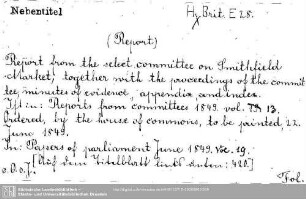 Nebentitel
Hist. Brit. E 28.
(Report)
Report from the select committee on Smithfield
Market, together with the proceedings of the commit
tee, minutes of evidence, appendix and index.
Ist in: Reports from committees 1849. vol. 13.
Ordered, by the house of commons, to be printed 22.
June 1849.
In: Papers of parliament June 1849. Vol. 19.
[Auf dem Titelblatt links unten: 420.]
o.O.o.J.
Fol.
Sächsische Landesbibliothek -